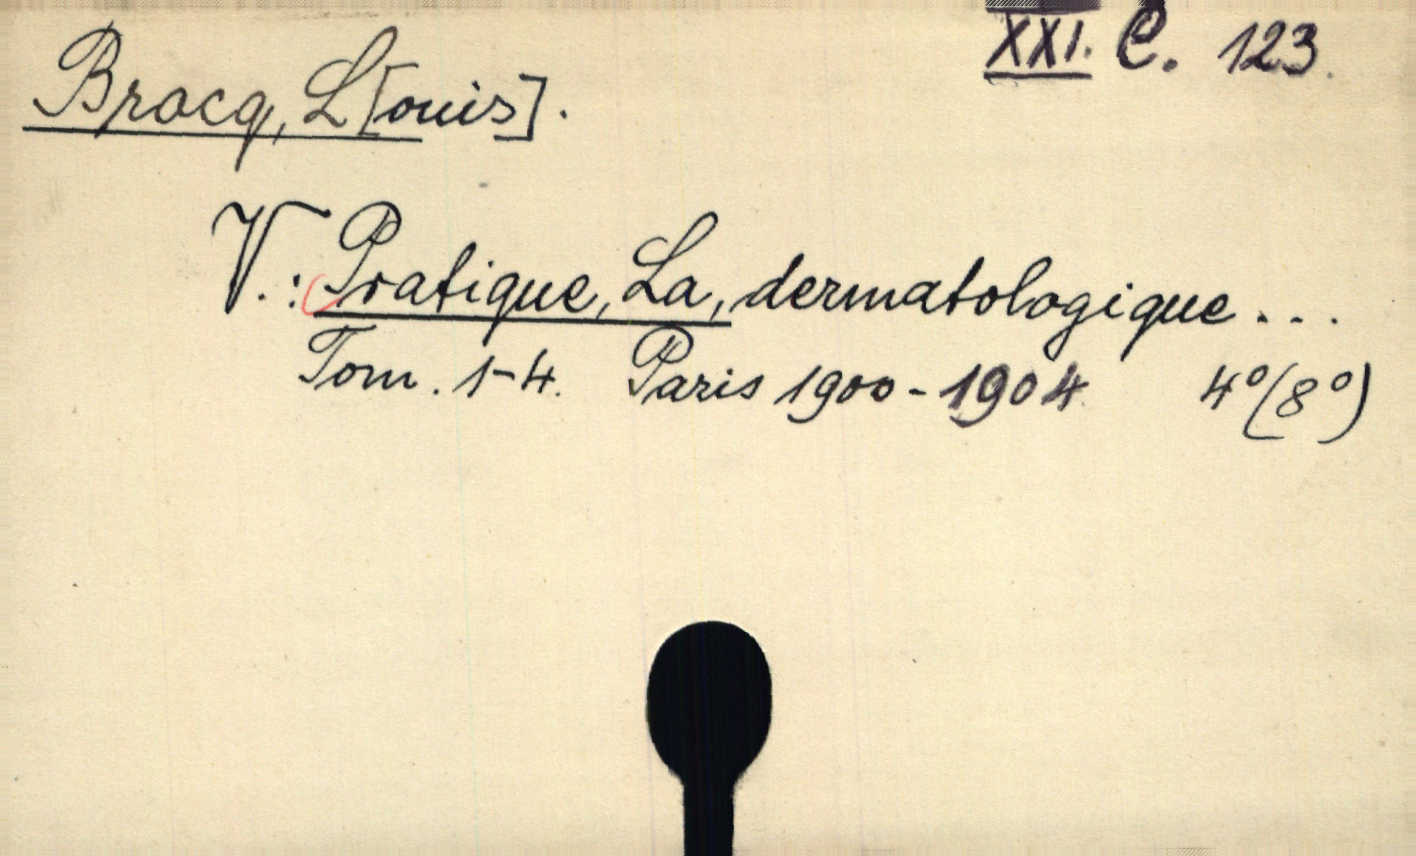 XXI. C. 123.
Brocq, L[ouis].
V.: Pratique, La, dermatologique...
Tom. 1-4. Paris 1900-1904 4°(8°)